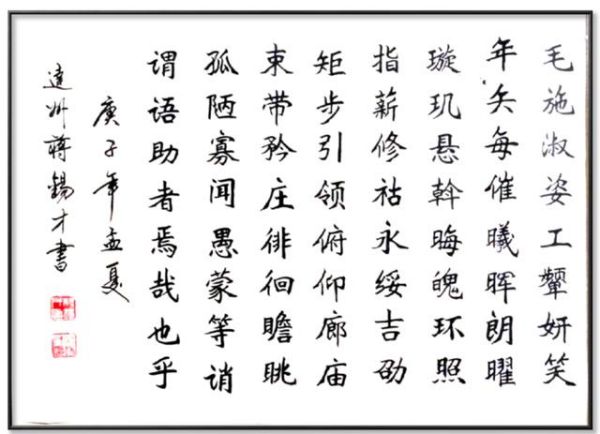 毛施淑姿工颦妍笑
年矢每催曦晖朗曜
璇玑悬斡晦魄环照
指薪修祜永绥吉劭
矩步引领俯仰廊庙
束带矜庄徘徊瞻眺
孤陋寡闻愚蒙等诮
谓语助者焉哉也乎
庚子年孟夏
達州蒋锡才書